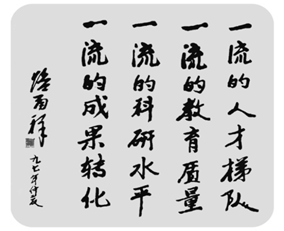 一流的人才梯队
一流的教育质量
一流的科研水平
一流的成果转化
路甬祥
九七年仲夏